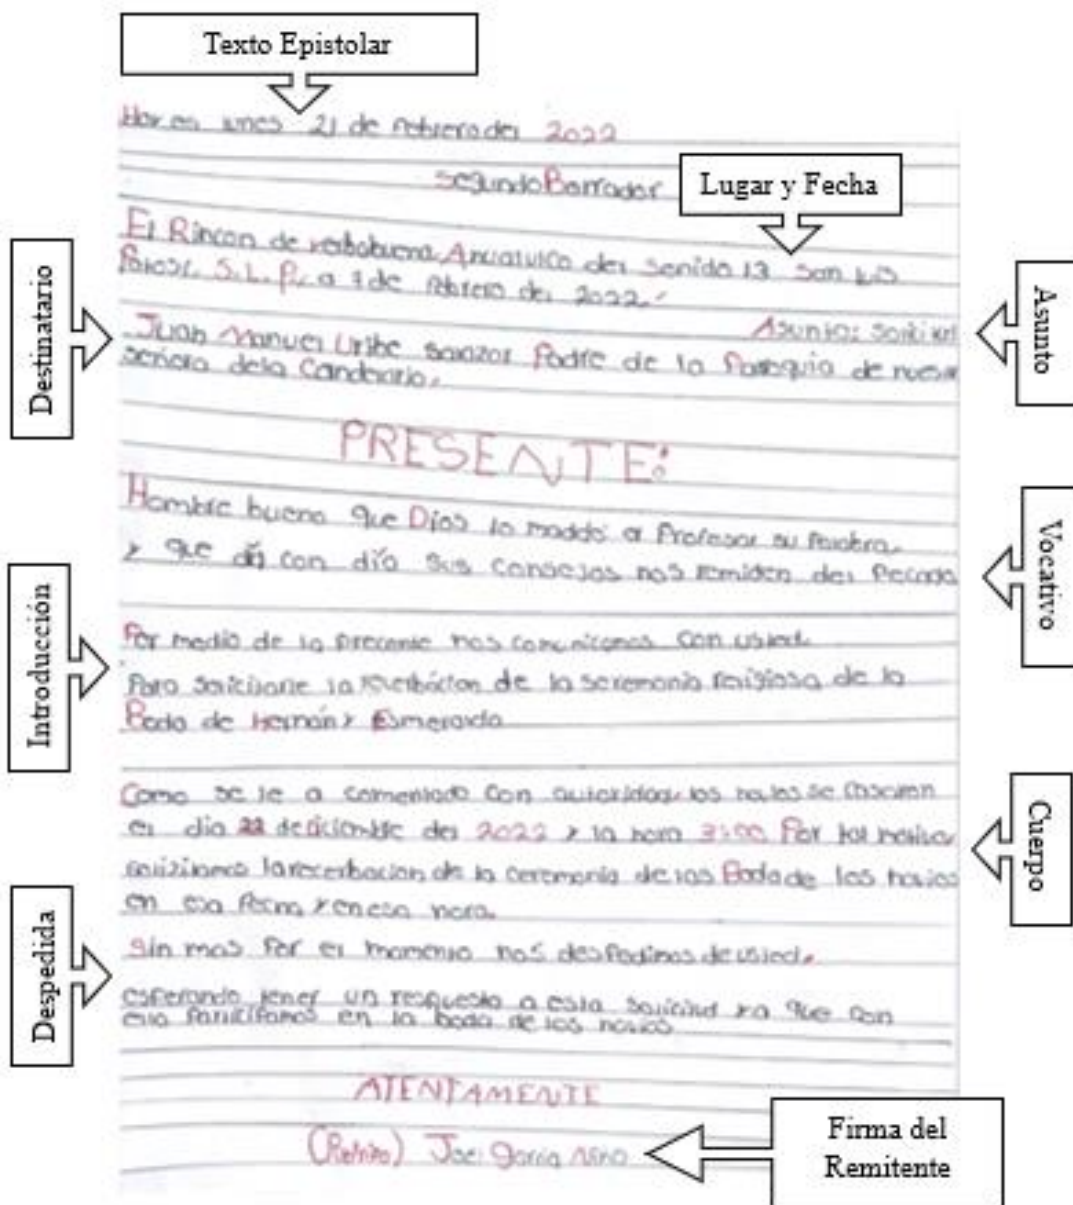 Texto Epistolar
Hoy es lunes 21 de febrero del 2022
Segundo Borrador
Lugar y Fecha
El Rincon de yerbabuena del sonido 13 San Luis
Potosí, S.L.P., a 7 de febrero del 2022.
Asunto
Asunto:
Destinatario
Juan Manuel Uribe Salazar Padre de la Parroquia de nuestr
señora dela Candelaria.
PRESENTE:
Vocativo
Hombre bueno que Dios lo maddó a Profesar su Palabra,
y que día con día sus consejos nos remiden del Pecado
Introducción
Por medio de la precente nos comunicamos con usted.
Para de la seremonia religiosa de la
Boda de Hernán y Esmeralda
Cuerpo
Como se le a comentado con autoridad, los novios se casaran
el dia 22 de diciembre del 2022 y la hora 3:00 Por tal motivo
la recerbacion de la ceremonia de las Boda de los novios
en esa fecha y en esa hora.
Despedida
Sin mas Por el momento nos despedimos de usted.
esperando tener un respuesta a esta solicitud ya que con
ello Participamos en la boda de los novios
ATENTAMENTE
Joel García Nino
Firma del
Remitente